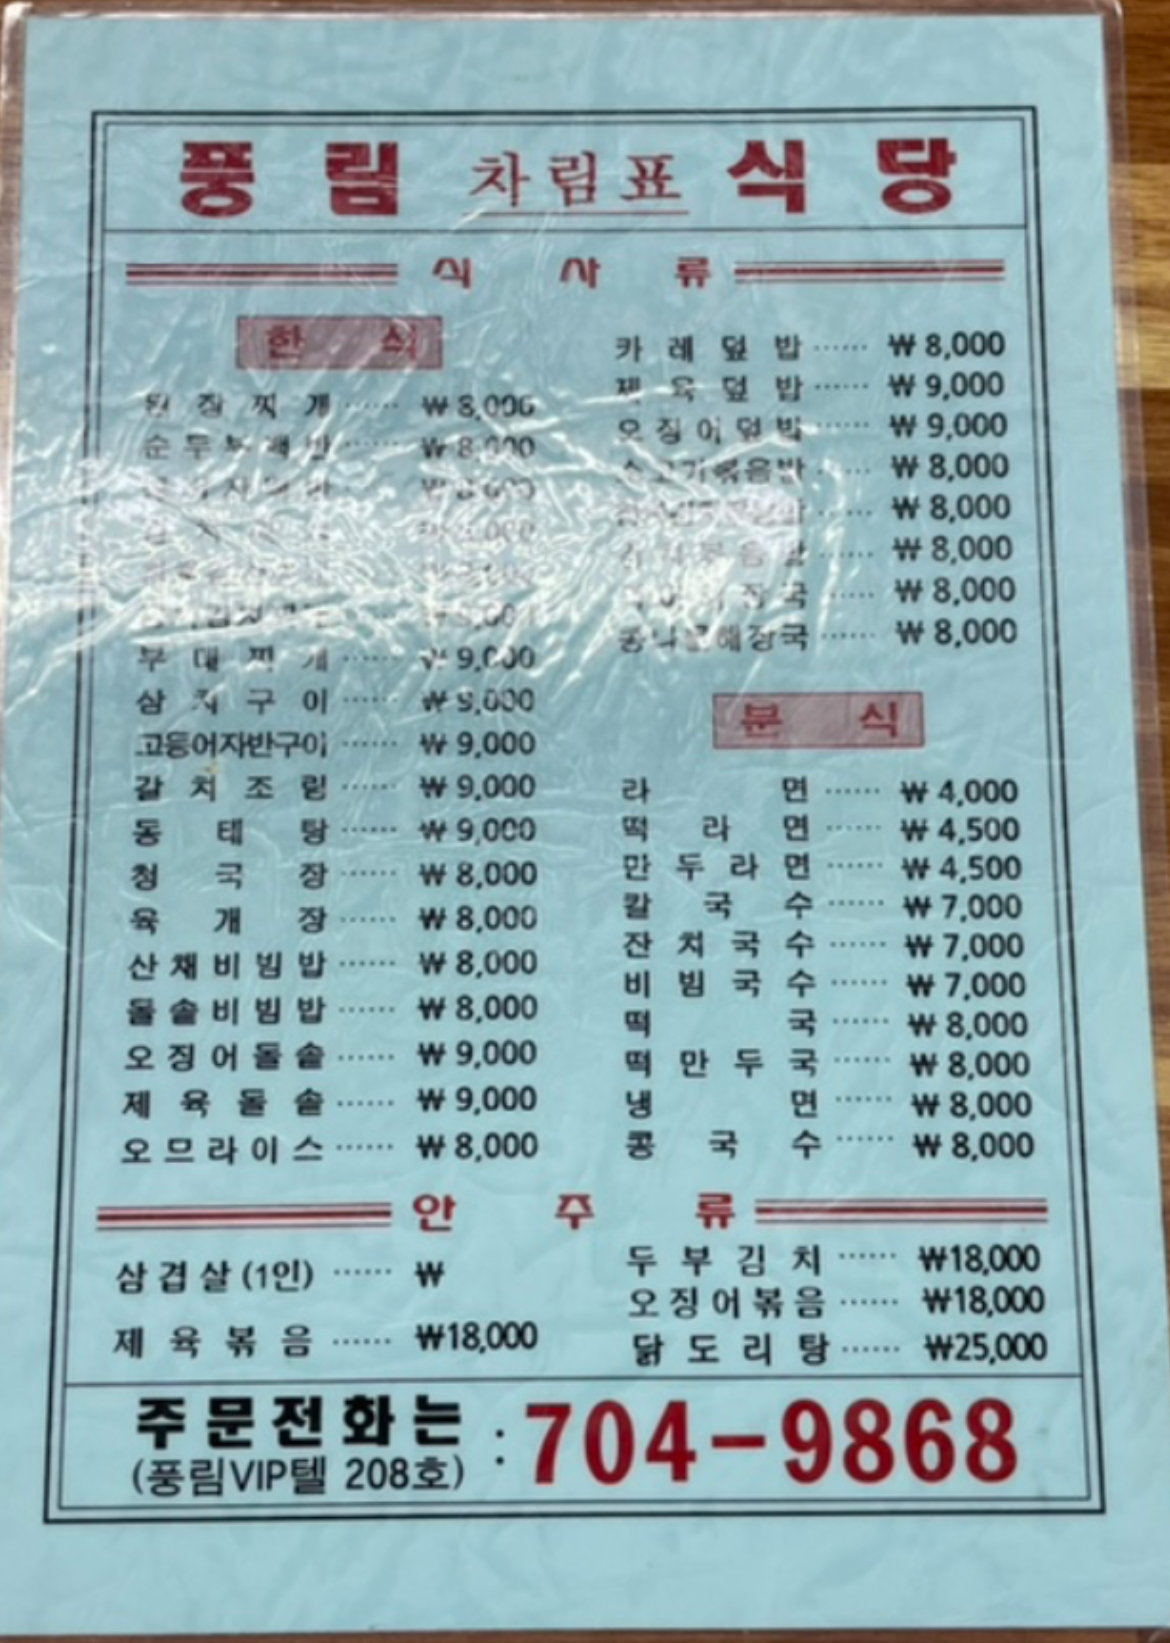 풍림 차림표 식당
식사류
한식
된장찌개 ······ ₩8,000
순두부백반 ······ ₩8,000
부대찌개 ······ ₩9,000
삼치구이 ······ ₩9,000
고등어자반구이 ······ ₩9,000
갈치조림 ······ ₩9,000
동태탕 ······ ₩9,000
청국장 ······ ₩8,000
육개장 ······ ₩8,000
산채비빔밥 ······ ₩8,000
돌솥비빔밥 ······ ₩8,000
오징어돌솥 ······ ₩9,000
제육돌솥 ······ ₩9,000
오므라이스 ······ ₩8,000
카레덮밥 ······ ₩8,000
제육덮밥 ······ ₩9,000
오징어덮밥 ······ ₩9,000
소고기볶음밥 ······ ₩8,000
₩8,000
₩8,000
₩8,000
콩나물해장국 ······ ₩8,000
분식
라면 ······ ₩4,000
떡라면 ······ ₩4,500
만두라면 ······ ₩4,500
칼국수 ······ ₩7,000
잔치국수 ······ ₩7,000
비빔국수 ······ ₩7,000
떡국 ······ ₩8,000
떡만두국 ······ ₩8,000
냉면 ······ ₩8,000
콩국수 ······ ₩8,000
안주류
삼겹살(1인) ······ ₩
제육볶음 ······ ₩18,000
두부김치 ······ ₩18,000
오징어볶음 ······ ₩18,000
닭도리탕 ······ ₩25,000
주문전화는 : 704-9868
(풍림VIP텔 208호)